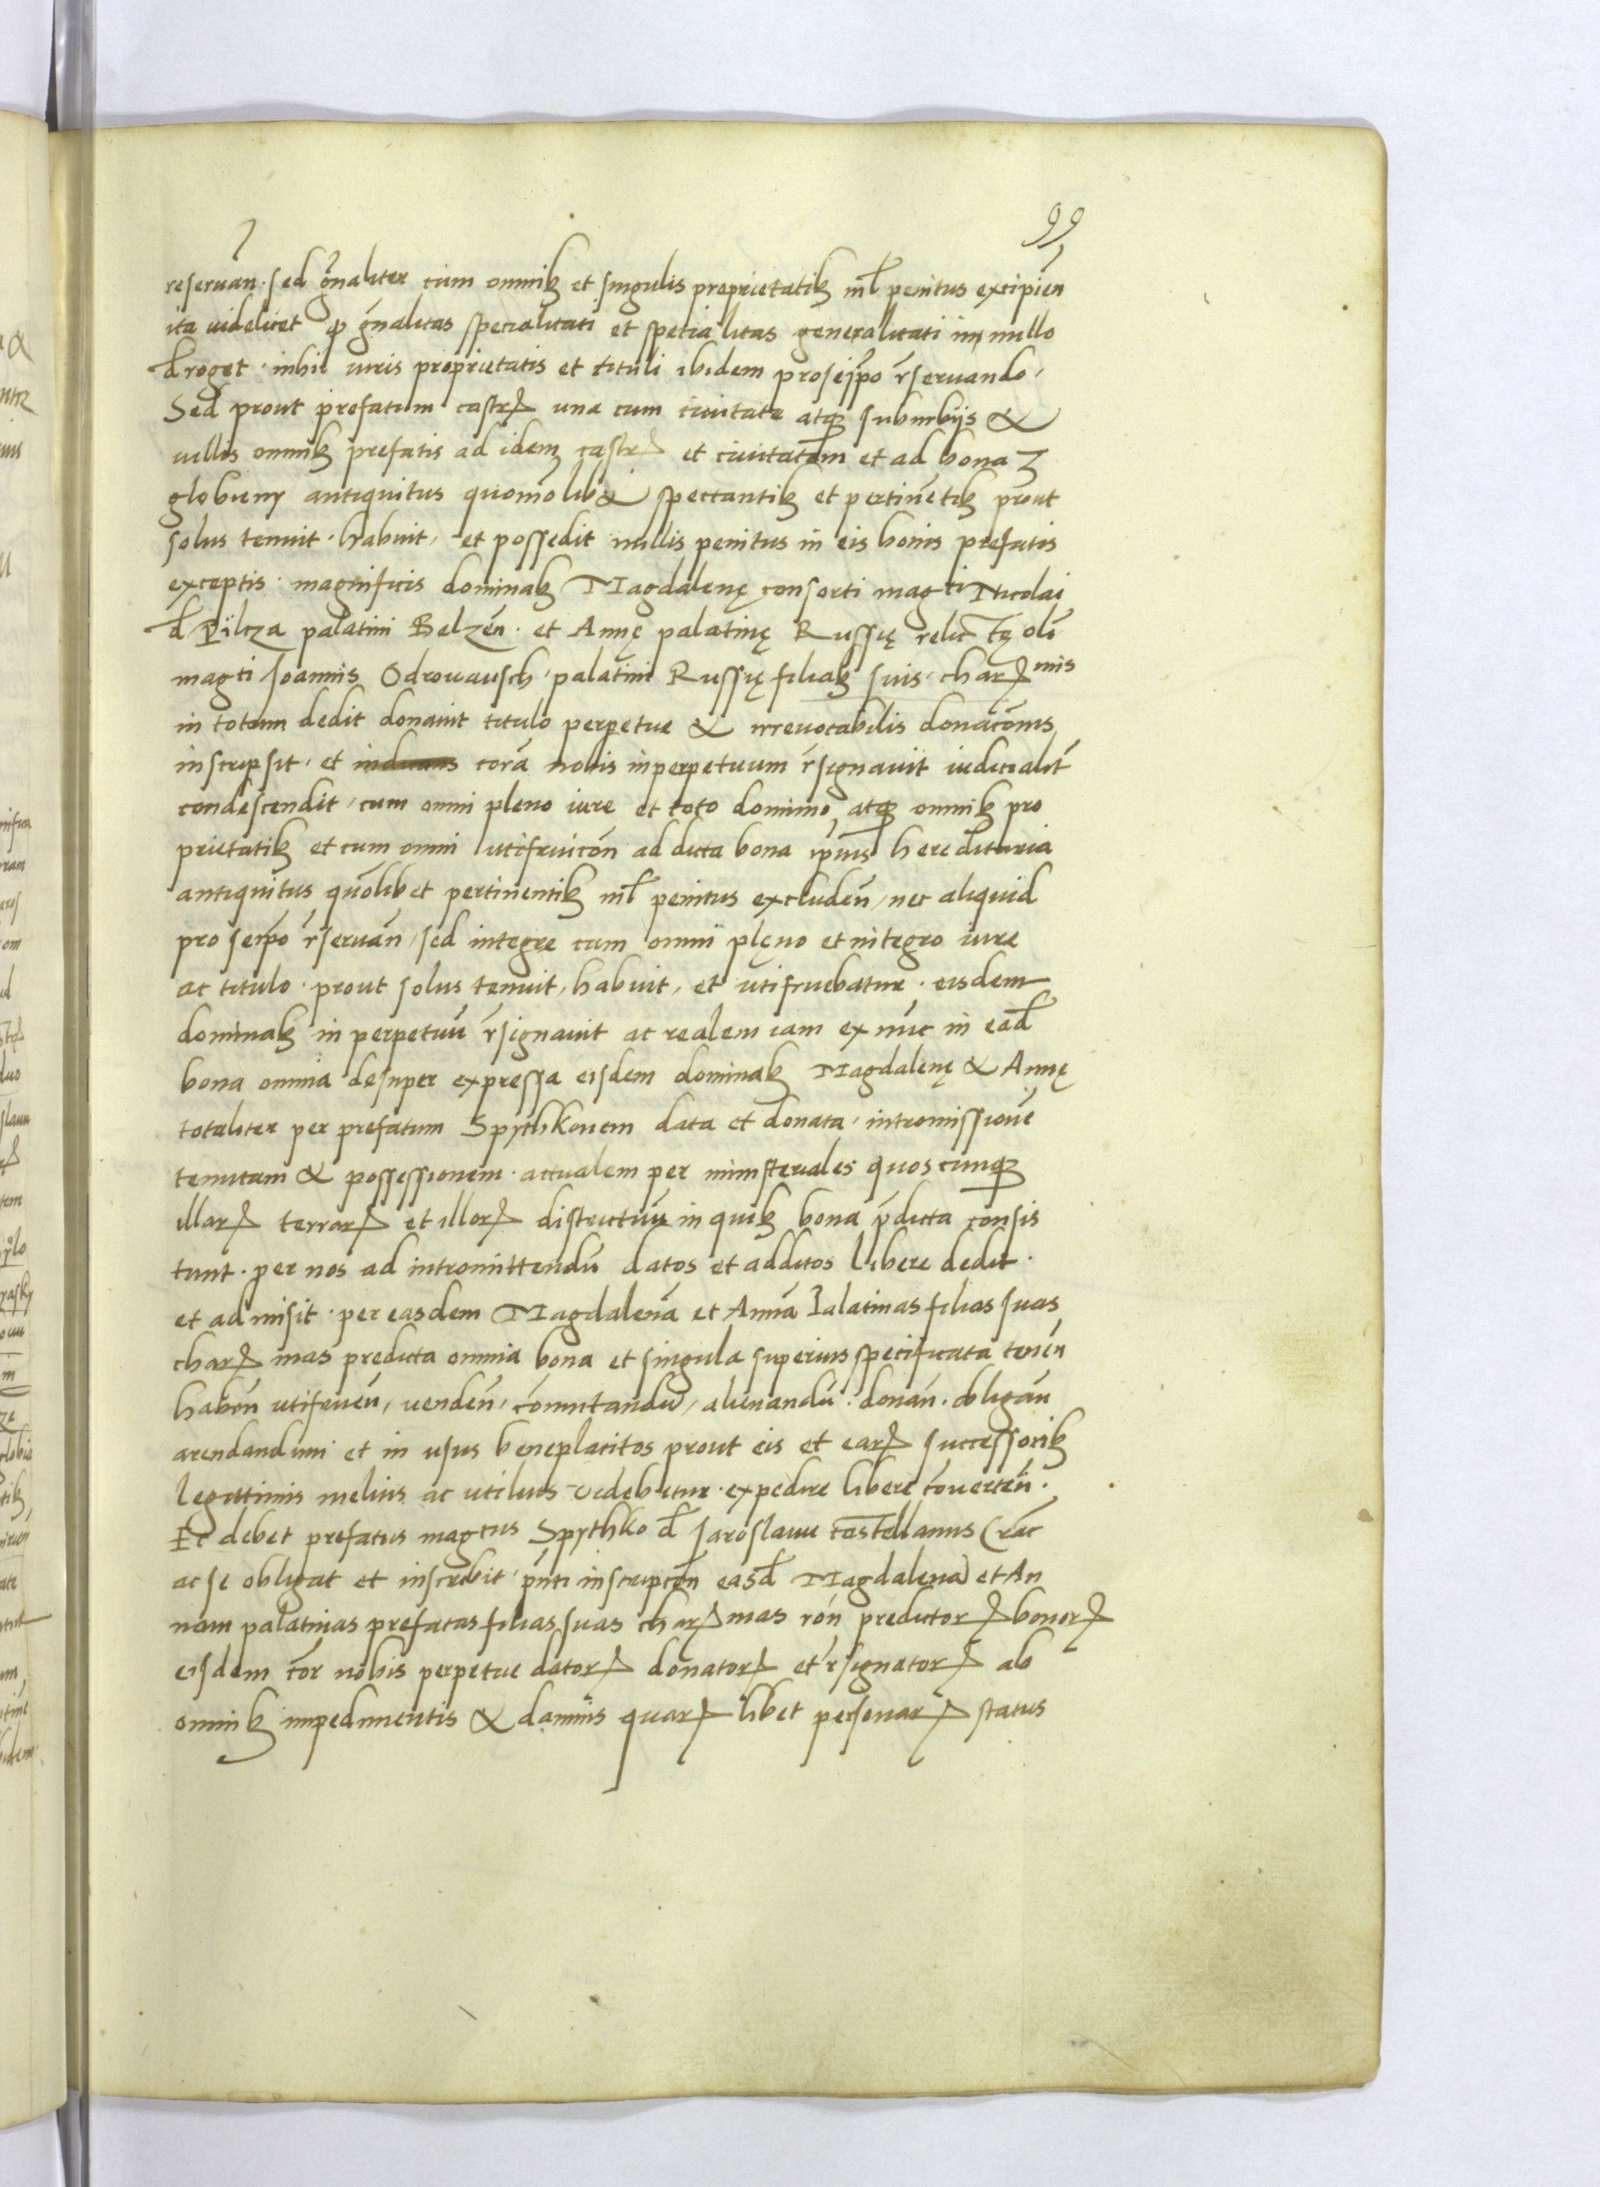 99
reseruan̄. sed gn̄aliter cum omnibꝫ et singulis proprietatibꝫ nil̄ penitus excipien̄
ita videlicet ꝙ gn̄alitas specialitati et specialitas generalitati in nullo
deroget. nihil iuris proprietatis et tituli ibidem pro seip̄o r̄seruando.
Sed prout prefatum castrꝝ una cum ciuitate atqꝫ suburbijs &
villis omnibꝫ prefatis ad idem castrꝝ et ciuitatem et ad bona Z
globieny antiquitus quomōlibꝫ spectantibꝫ et pertinētibꝫ prout
solus tenuit. habuit, et possedit nullis penitus in eis bonis prefatis
exceptis. magnificis dominabꝫ Magdalenę consorti magci Nicolai
de Pilcza palatini Belzēn. et Annę palatinę Russię relictę oli
magci Joannis Odrowausch. palatini Russię filiabꝫ suis. charꝝmis
in totum dedit donauit titulo perpetue & irreuocabilis donac̄onis
inscripsit. et corā nobis inperpetuum r̄signauit iudicialit̄
condescendit, cum omni pleno iure et toto dominio atqꝫ omnibꝫ pro
prietatibꝫ et cum omni utifruicōn ad dicta bona ip̄ius hereditaria
antiquitus quōlibet pertinentibꝫ nil̄ penitus excluden̄, nec aliquid
pro seip̄o r̄seruan̄, sed integre cum omni plęno et integro iure
ac titulo. prout solus tenuit, habuit, et utifruebatur. eisdem
dominabꝫ in perpetuū r̄signauit ac realem iam ex nūc in ead̄
bona omnia desuper expressa eisdem dominabꝫ Magdalenę & Annę
totaliter per prefatum Spythkonem data et donata. intromissionē
tenutam & possessionem. actualem per ministeriales quoscunqꝫ
illarꝝ terrarꝝ et illorꝝ districtuū in quibꝫ bona p̄dicta consis
tunt. per nos ad intromittendū datos et additos libere dedit.
et admisit. per easdem Magdalenā et Annā Palatinas filias suas
charꝝmas predicta omnia bona et singula superius specificata tenēn
habēn utifruēn, vendēn, cōmutandū, alienandū. donān. obligān
arendandum et in usus beneplacitos prout eis et earꝝ successoribꝫ
legittimis melius ac utilius videbitur. expedire libere cōuertēn.
Et debet prefatus magcus Spythko de Jaroslaw castellanus Crac̄
ac se obligat et inscribit. p̄nti inscripcōn easd̄ Magdalenā et An
nam palatinas prefatas filias suas charꝝmas rōn predictorꝝ bonorꝝ
eisdem cor̄ nobis perpetue datorꝝ donatorꝝ et r̄signatorꝝ ab
omnibꝫ impedimentis & damnis quarꝝlibet personarꝝ status